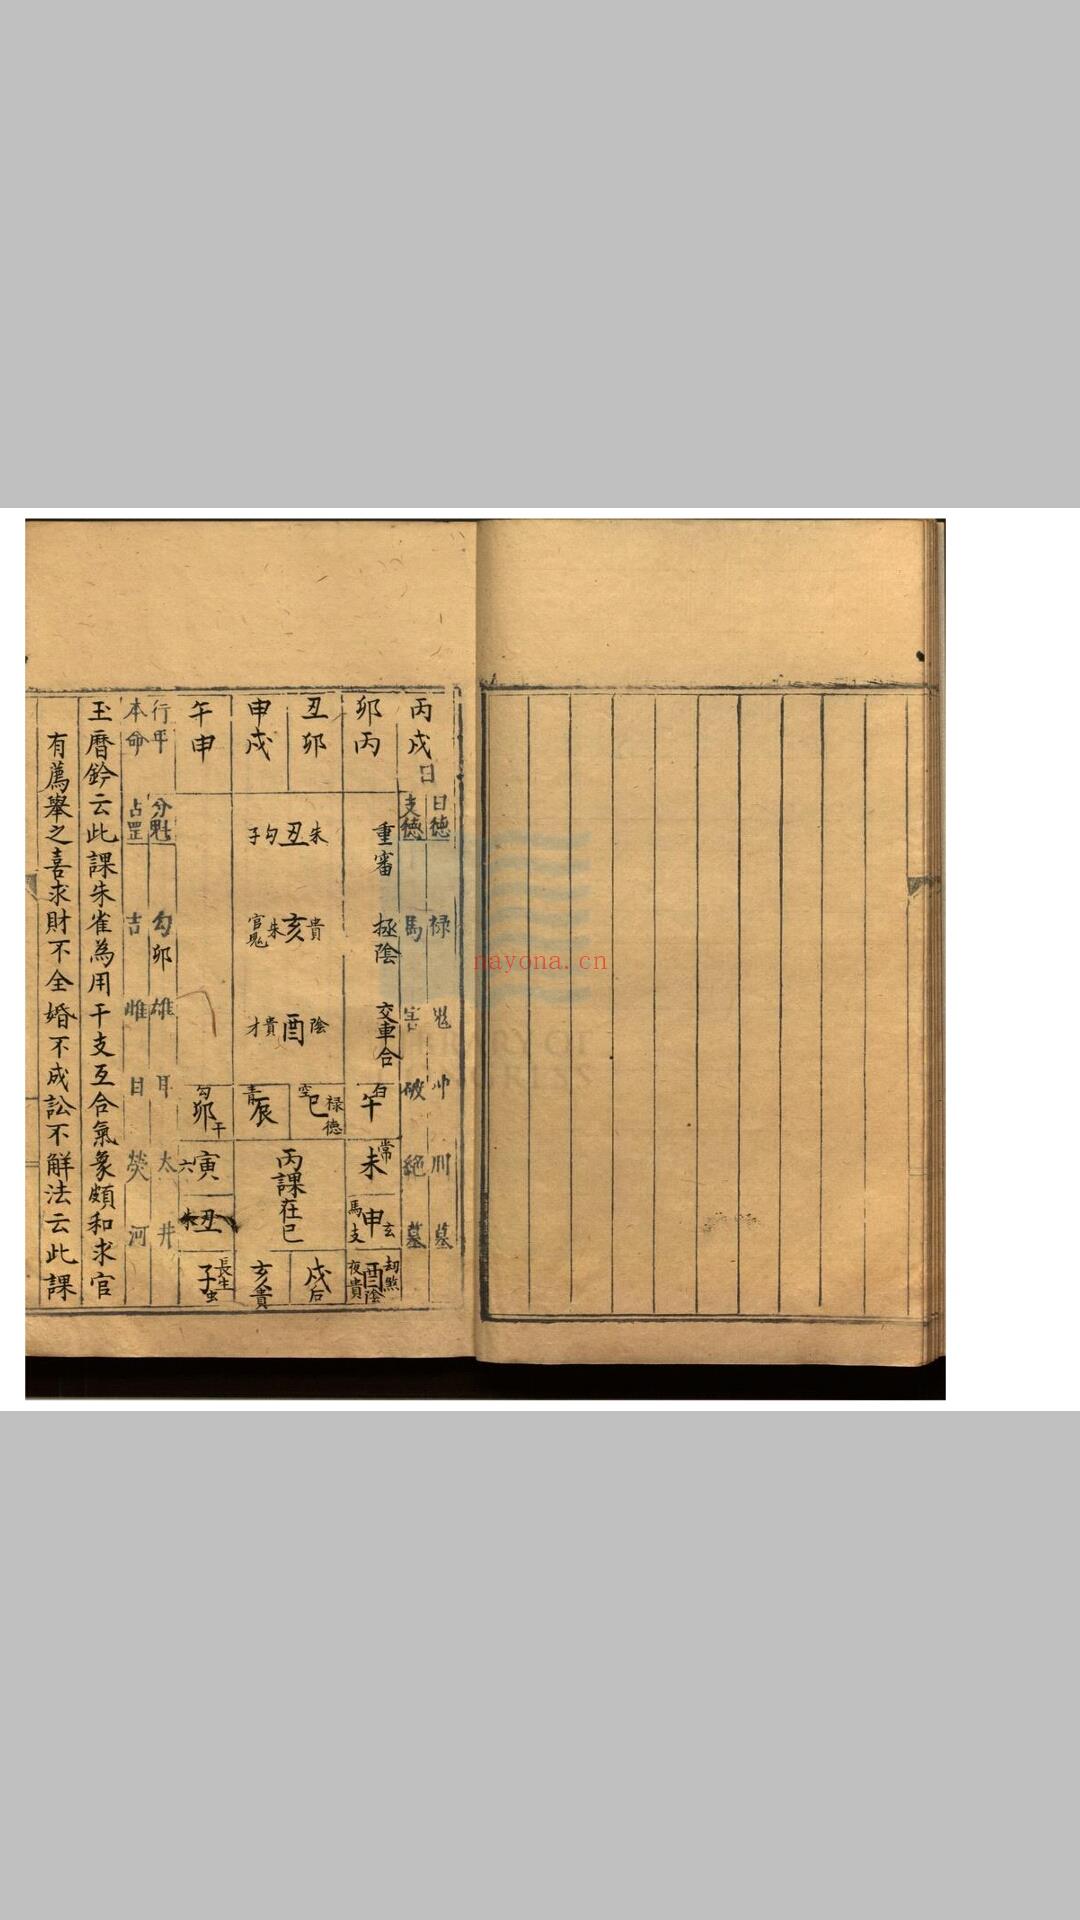 丙戌日
日德 祿 鬼 冲 刑 墓
支德 馬 害 破 絕 墓
卯丙
丑卯
申戌
午申
重審 極陰 交車合
朱丑勾子
貴亥朱官鬼
陰酉貴才
白午
空巳祿德
青辰
勾卯干
常未
丙課在巳
六寅
玄申馬支
朱丑
劫煞酉陰夜貴
戌后
亥貴
長生子
行年 分野 勾卯 雄 耳 太 井
本命 占罡 吉 雌 目 熒 河
玉曆鈐云此課朱雀為用干支互合氣象頗和求官
有薦舉之喜求財不全婚不成訟不解法云此課
nayona.cn